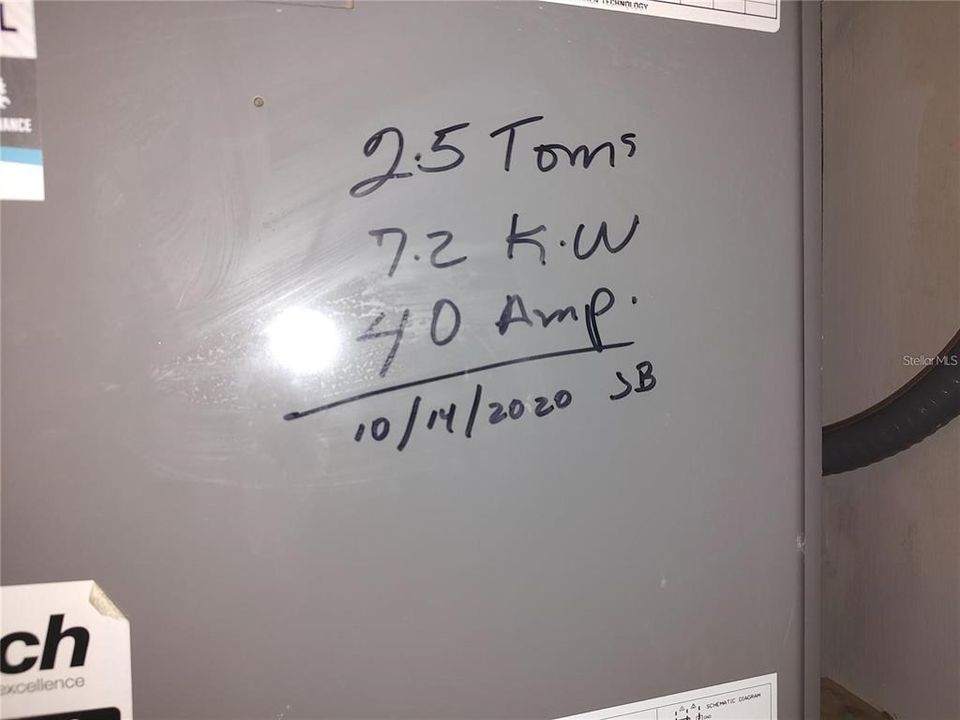 L
TECHNOLOGY
ANCE
2.5 Toms
7.2 K.W
40 Amp.
10/14/2020 SB
StellarMLS
ch
excellence
SCHEMATIC DIAGRAM